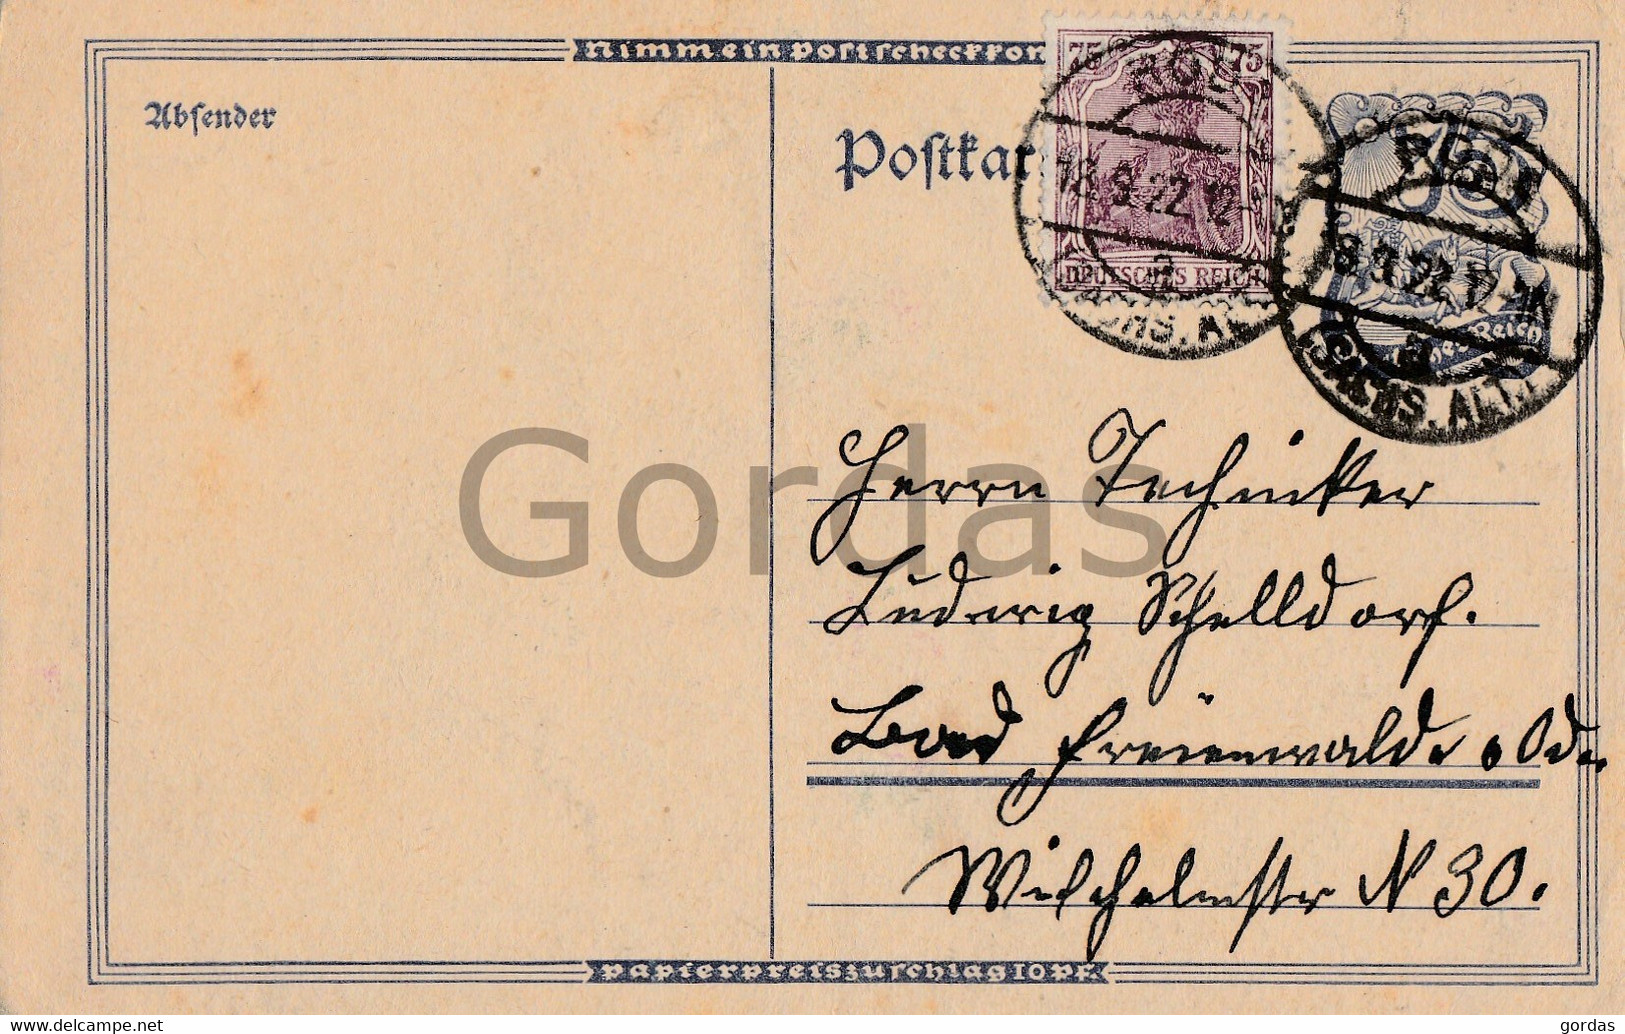 Nimm ein Postscheckkon
Absender
Postkar
75 75
DEUTSCHES REICH
18.9.22.12
a
SACHS. ALT
75
Reich
8.9.22.12-1N
a
(SACHS. ALT.)
Gordas
Herrn Techniker
Ludwig Schelldorf.
Bad Freienwalde Od.
Wilhelmstr N 30.
Papierpreiszuschlag 10 Pf.
www.delcampe.net
gordas